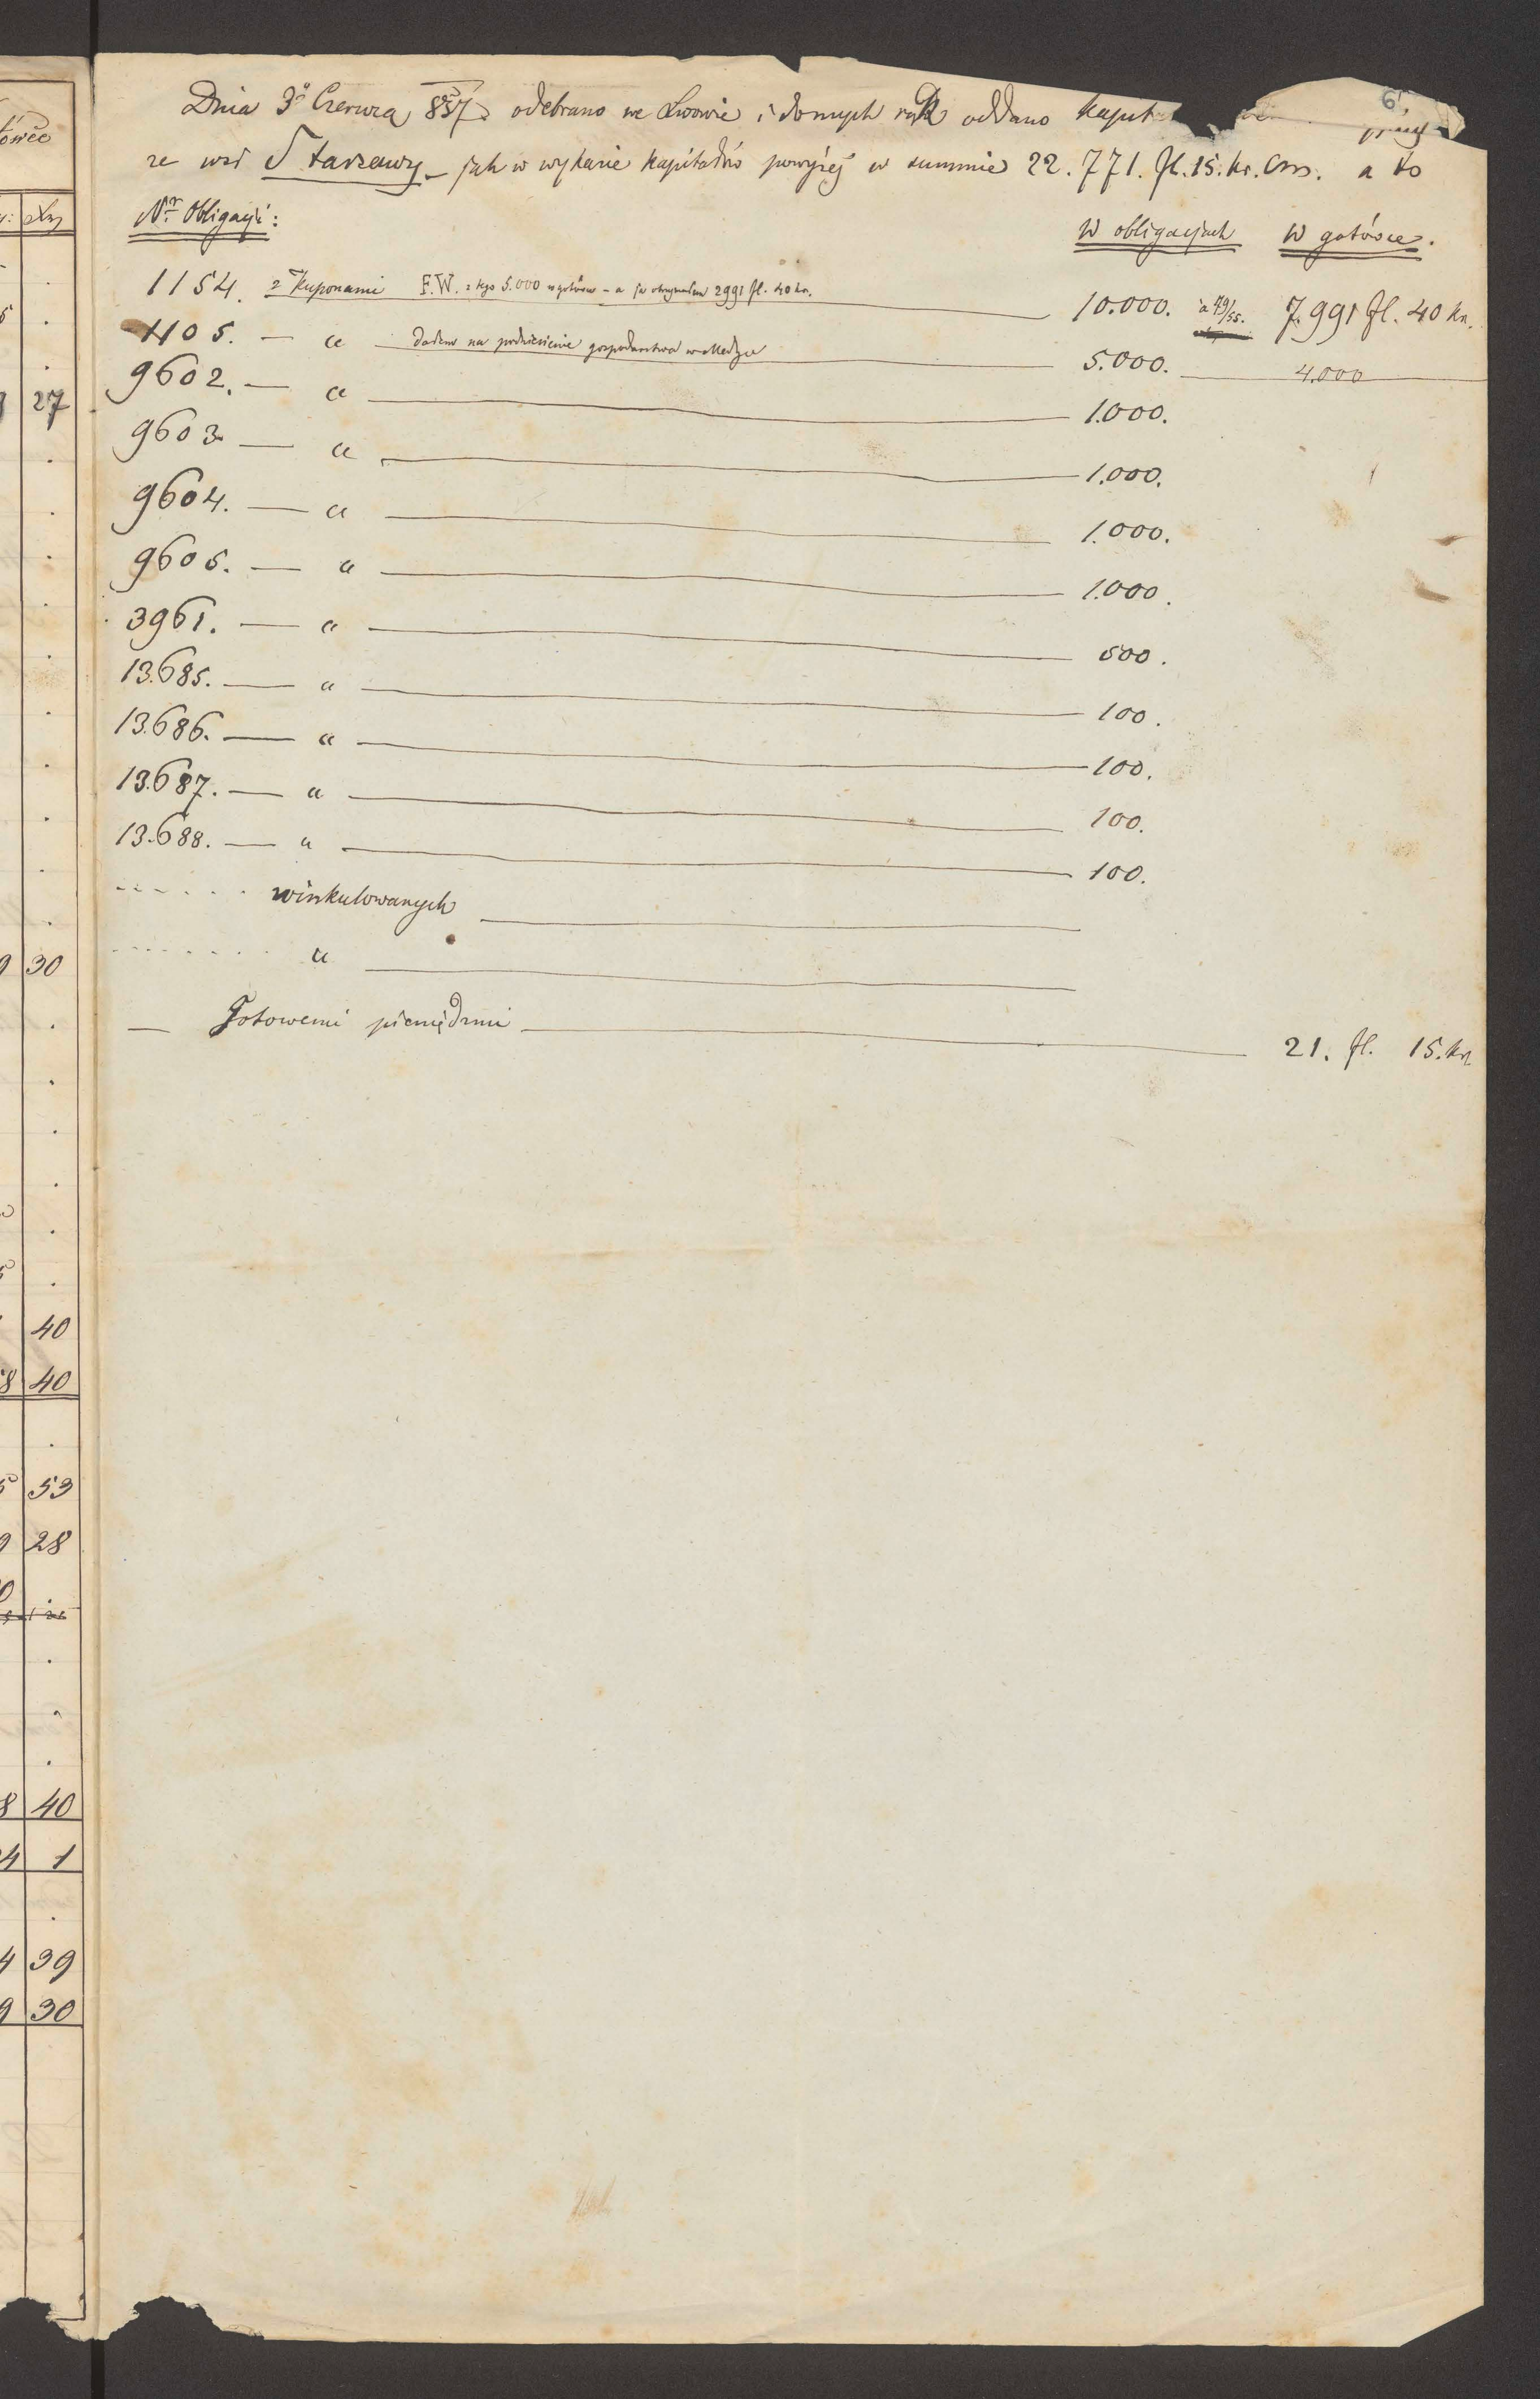 6.
Dnia 3º Czerwca 857 odebrano we Lwowie i do mych rąk oddano kapit
ze wsi Starzawy – jak w wykazie kapitałów powyżej w summie 22.771. fl. 15. kr. Cm. a to
Nr Obligacji: W obligacjach W gotówce.
1154. z Kuponami F.W. z tego 5.000 w gotówce – a ja otrzymałem 2991 fl. 40 kr. 10.000. à 79/55. 7.991 fl. 40 kr.
1105. — „ Dałem na podniesienie gospodarstwa w Medyce 5.000. 4.000
9602. — „ 1.000.
9603 — „ 1.000.
9604. — „ 1.000.
9605. — „ 1.000.
3961. — „ 500.
13.685. — „ 100.
13.686. — „ 100.
13.687. — „ 100.
13.688. — „ 100.
winkulowanych
„
— Gotowemi pieniędzmi 21. fl. 15. kr
27
30
40
8 40
53
28
8 40
4 1
4 39
9 30